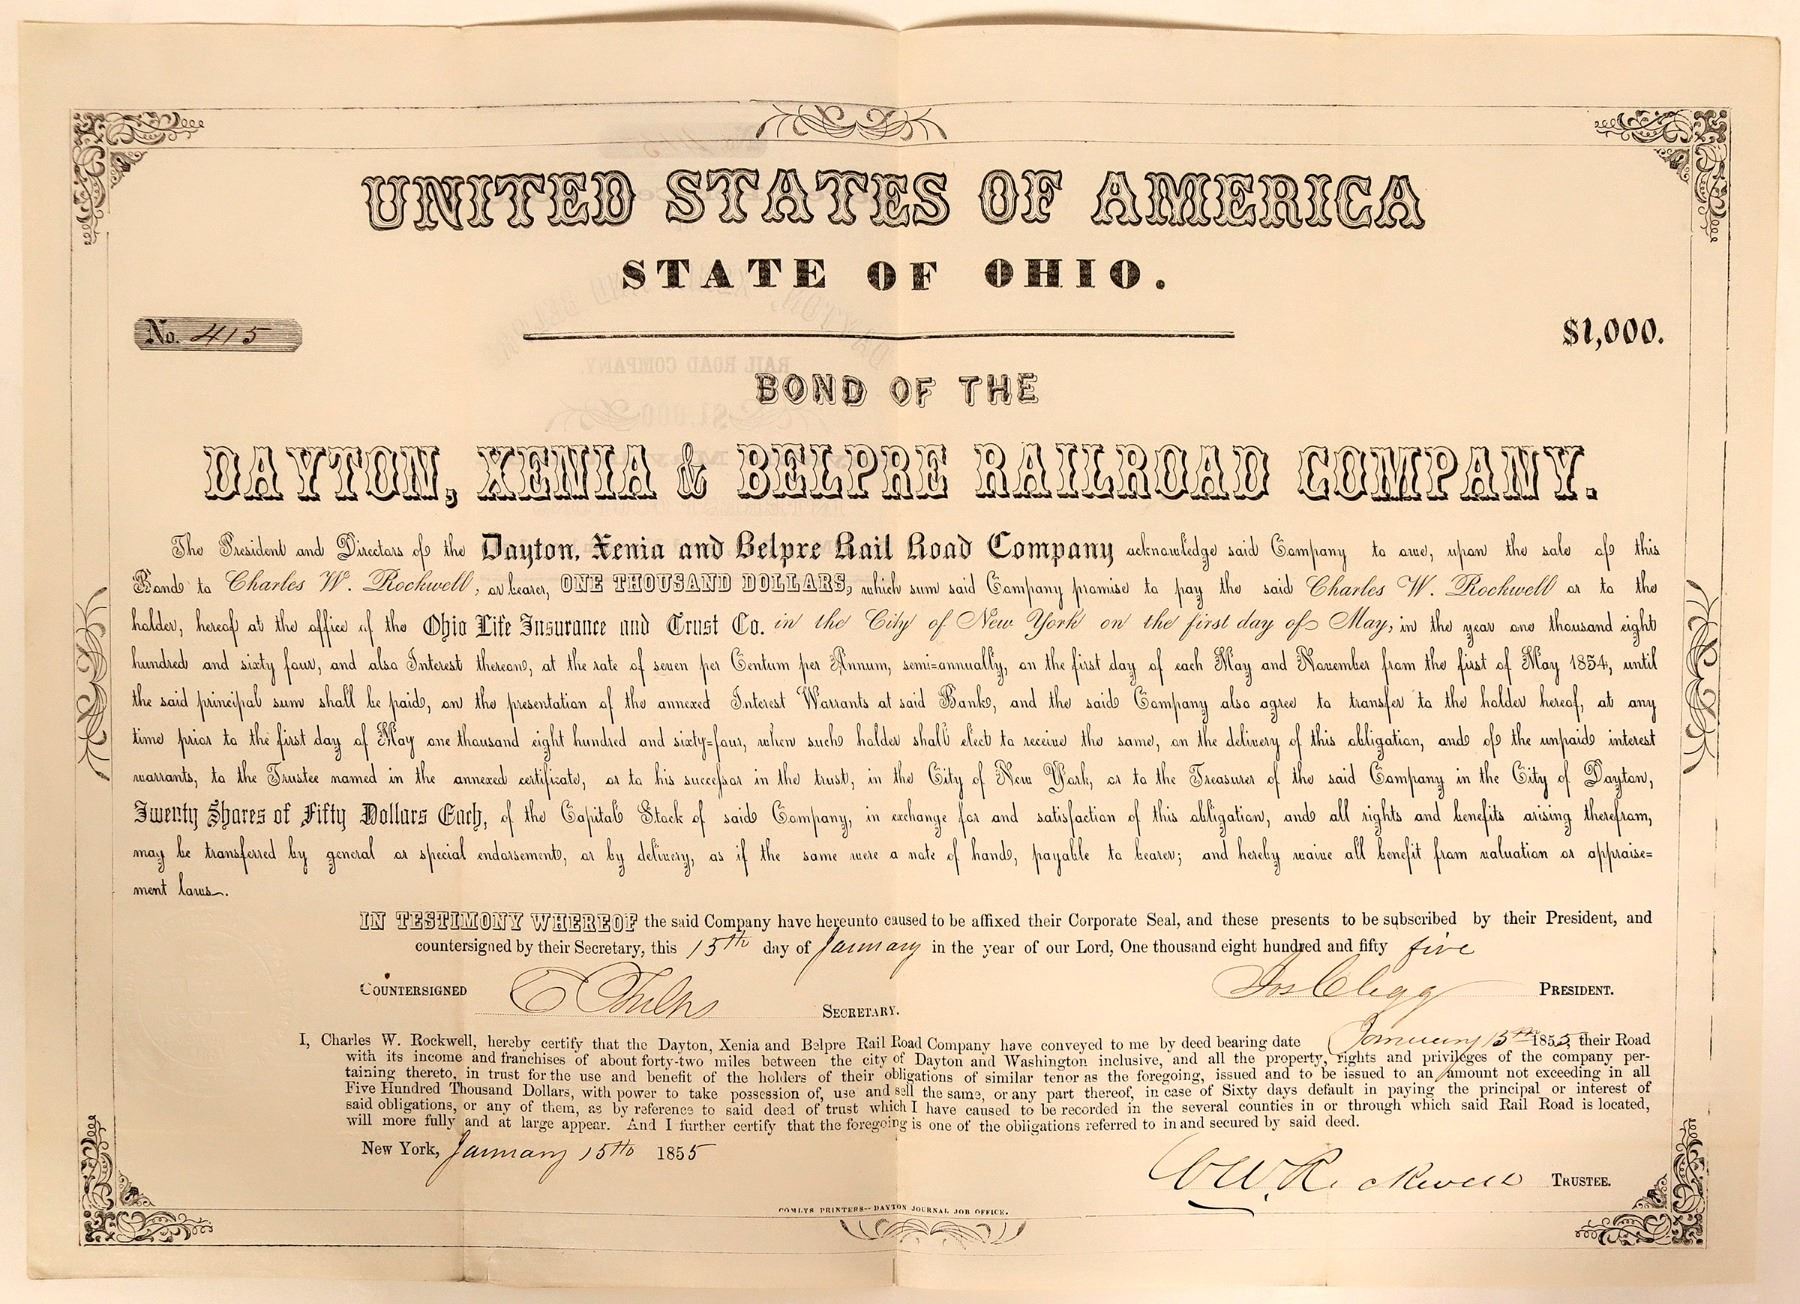 UNITED STATES OF AMERICA
STATE OF OHIO.
No. 415
$1,000.
BOND OF THE
DAYTON, XENIA & BELPRE RAILROAD COMPANY.
The President and Directors of the Dayton, Xenia and Belpre Rail Road Company acknowledge said Company to owe, upon the sale of this
Bond to Charles W. Rockwell, or bearer, ONE THOUSAND DOLLARS, which sum said Company promise to pay the said Charles W. Rockwell or to the
holder, hereof at the office of the Ohio Life Insurance and Trust Co. in the City of New York on the first day of May, in the year one thousand eight
hundred and sixty four, and also Interest thereon, at the rate of seven per Centum per Annum, semi=annually, on the first day of each May and November from the first of May 1854, until
the said principal sum shall be paid, on the presentation of the annexed Interest Warrants at said Bank, and the said Company also agree to transfer to the holder hereof, at any
time prior to the first day of May one thousand eight hundred and sixty=four, when such holder shall elect to receive the same, on the delivery of this obligation, and of the unpaid interest
warrants, to the Trustee named in the annexed certificate, or to his successor in the trust, in the City of New York, or to the Treasurer of the said Company in the City of Dayton,
Twenty Shares of Fifty Dollars Each, of the Capital Stock of said Company, in exchange for and satisfaction of this obligation, and all rights and benefits arising therefrom,
may be transferred by general or special endorsement, or by delivery, as if the same were a note of hand, payable to bearer; and hereby waive all benefit from valuation or appraise=
ment laws.
IN TESTIMONY WHEREOF the said Company have hereunto caused to be affixed their Corporate Seal, and these presents to be subscribed by their President, and
countersigned by their Secretary, this 15th day of January in the year of our Lord, One thousand eight hundred and fifty five
COUNTERSIGNED
SECRETARY.
Jos Clegg PRESIDENT.
I, Charles W. Rockwell, hereby certify that the Dayton, Xenia and Belpre Rail Road Company have conveyed to me by deed bearing date January 15th 1855, their Road
with its income and franchises of about forty-two miles between the city of Dayton and Washington inclusive, and all the property, rights and privileges of the company per-
taining thereto, in trust for the use and benefit of the holders of their obligations of similar tenor as the foregoing, issued and to be issued to an amount not exceeding in all
Five Hundred Thousand Dollars, with power to take possession of, use and sell the same, or any part thereof, in case of Sixty days default in paying the principal or interest of
said obligations, or any of them, as by reference to said deed of trust which I have caused to be recorded in the several counties in or through which said Rail Road is located,
will more fully and at large appear. And I further certify that the foregoing is one of the obligations referred to in and secured by said deed.
New York, January 15th 1855
C W. Rockwell TRUSTEE.
COMLYS PRINTERS--DAYTON JOURNAL JOB OFFICE.